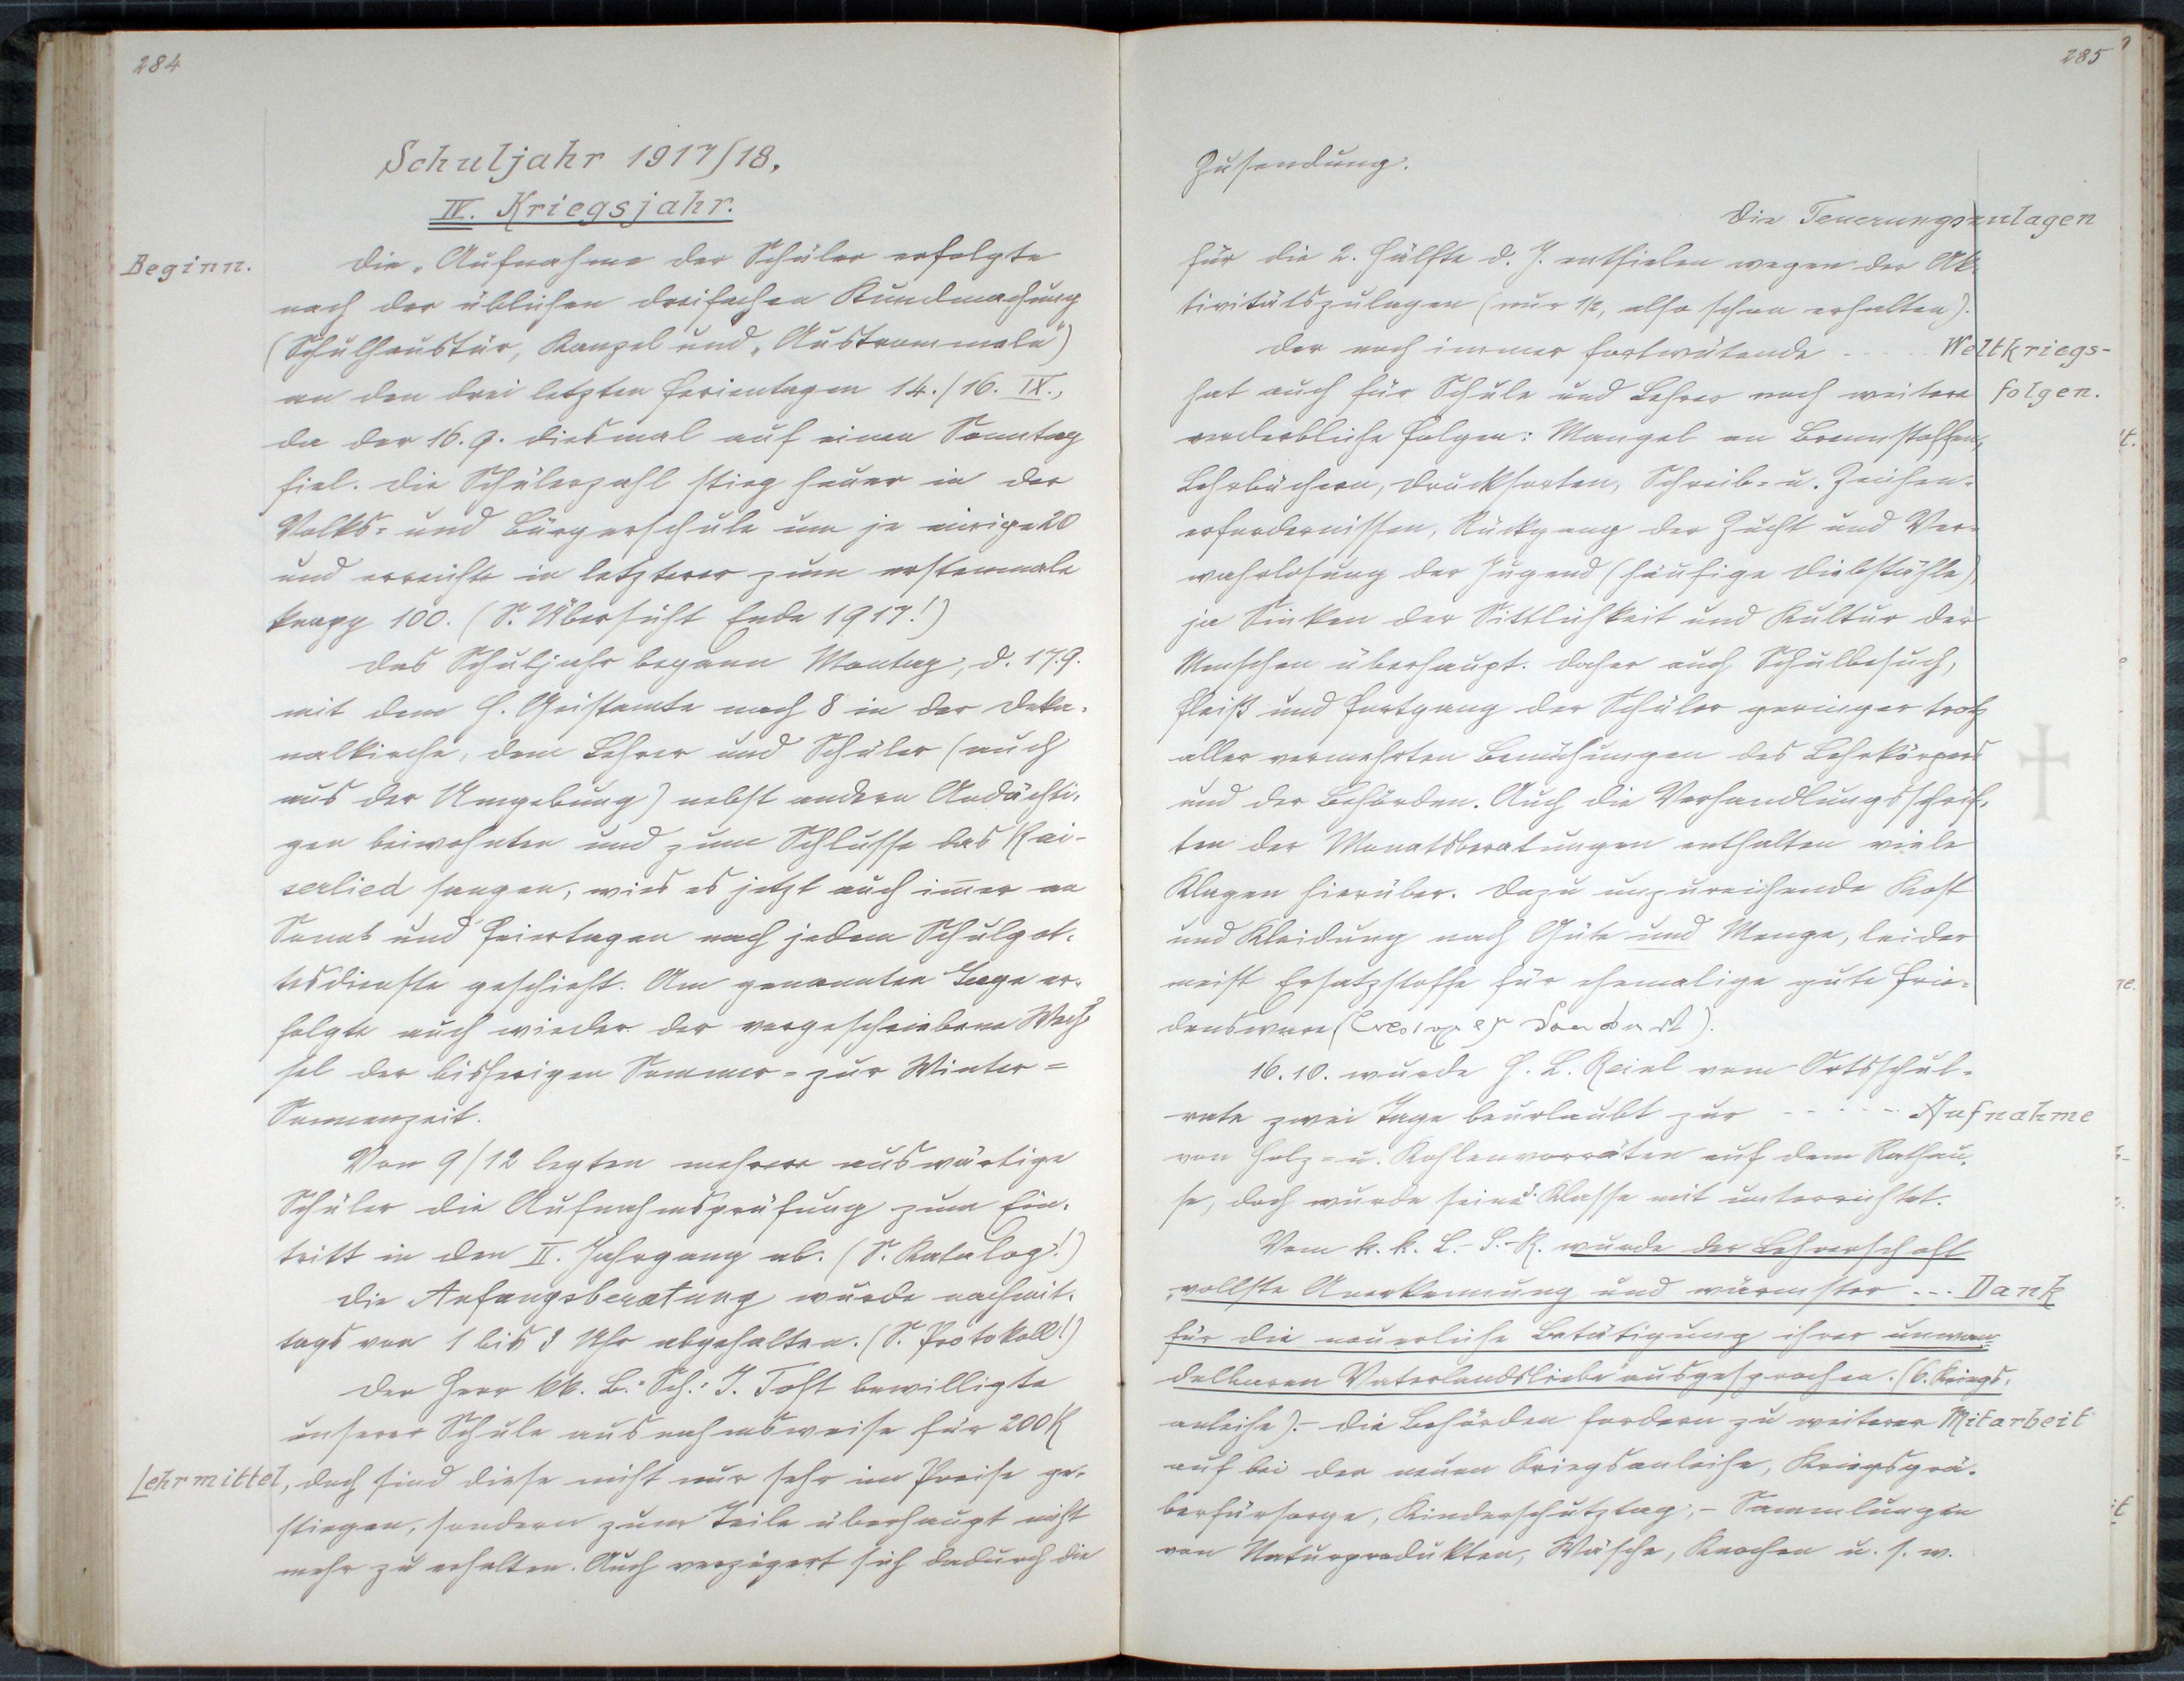 284
Schuljahr 1917/18.
IV. Kriegsjahr.
Beginn. Die Aufnahme der Schüler erfolgte
nach der üblichen dreifachen Kundmachung
(Schulhaustür, Kanzel und „Austrommeln“)
an den drei letzten Ferientagen 14./16. IX.,
da der 16. 9. diesmal auf einen Sonntag
fiel. Die Schülerzahl stieg heuer in der
Volks- und Bürgerschule um je einige 20
und erreichte in letzterer zum erstenmale
knapp 100. (S. Übersicht Ende 1917!)
Das Schuljahr begann Montag, d. 17.9.
mit dem H. Geistamte nach 8 in der Deka-
nalkirche, dem Lehrer und Schüler (auch
aus der Umgebung) nebst andern Andächti-
gen beiwohnten und zum Schlusse das Kai-
serlied sangen, wies es jetzt auch immer an
Sonn- und Feiertagen nach jedem Schulgot-
tesdienste geschieht. Am genannten Tage er-
folgte auch wieder der vorgeschriebene Wech-
sel der bisherigen Sommer- zur Winter-
Sonnenzeit.
Von 9/12 legten mehrere auswärtige
Schüler die Aufnahmsprüfung zum Ein-
tritt in den II. Jahrgang ab. (S. Katalog!)
Die Anfangsberatung wurde nachmit-
tags von 1 bis 3 Uhr abgehalten. (S. Protokoll!)
Der Herr kk. B.-Sch.-I. Toft bewilligte
unserer Schule ausnahmsweise für 200 K
Lehrmittel, doch sind diese nicht nur sehr im Preise ge-
stiegen, sondern zum Teile überhaupt nicht
mehr zu erhalten. Auch verzögert sich dadurch die
285
Zusendung.
Die Teuerungszulagen
für die 2. Hälfte d. J. entfielen wegen der Ak-
tivitätszulagen (nur 1/2, also schon erhalten).
Der noch immer fortwütende ..... Weltkriegs-
hat auch für Schule und Lehrer noch weitere folgen.
verderbliche Folgen: Mangel an Brennstoffen,
Lehrbüchern, Drucksorten, Schreib- u. Zeichen-
erfordernissen, Rückgang der Zucht und Ver-
wahrlosung der Jugend (häufige Diebstähle),
ja Sinken der Sittlichkeit und Kultur der
Menschen überhaupt. Daher auch Schulbesuch,
Fleiß und Fortgang der Schüler geringer trotz
aller vermehrten Bemühungen des Lehrkörpers
und der Behörden. Auch die Verhandlungsschrif-
ten der Monatsberatungen enthalten viele
Klagen hierüber. Dazu unzureichende Kost
und Kleidung nach Güte und Menge, leider
meist Ersatzstoffe für ehemalige gute Frie-
densware
16.10. wurde H. L. vom Ortsschul-
rate zwei Tage beurlaubt zur ----- Aufnahme
von Holz- u. Kohlenvorräten auf dem Rathau-
se, doch wurde seine Klasse mit unterrichtet.
Vom k. k. L.-S.-R. wurde der Lehrerschaft
„vollste Anerkennung und wärmster ... Dank
für die neuerliche Betätigung ihrer unwan-
delbaren Vaterlandsliebe“ ausgesprochen. (6. Kriegs-
anleihe).- Die Behörden fordern zu weiterer Mitarbeit
auf bei der neuen Kriegsanleihe, Kriegsgrä-
berfürsorge, Kinderschutztag, - Sammlungen
von Naturprodukten, Wäsche, Knochen u. s. w.